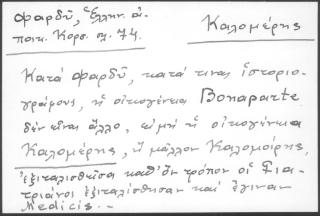 Φαρδῦ, Ἑλλην. ἀ-
ποικ. Κορσ. σλ. 74.
Καλομέρης
Κατά Φαρδῦ, κατά τινας ἱστοριο-
γράφους, ἡ οἰκογένεια Bonaparte
δέν εἶναι ἄλλο, εἰμή ἡ οἰκογένεια
Καλομέρης, ἤ μᾶλλον Καλομοίρης,
ἐξιταλισθεῖσα καθ' ὅν τρόπον οἱ Στια-
τριάνοι ἐξιταλίσθησαν καί ἔγιναν
Medicis.